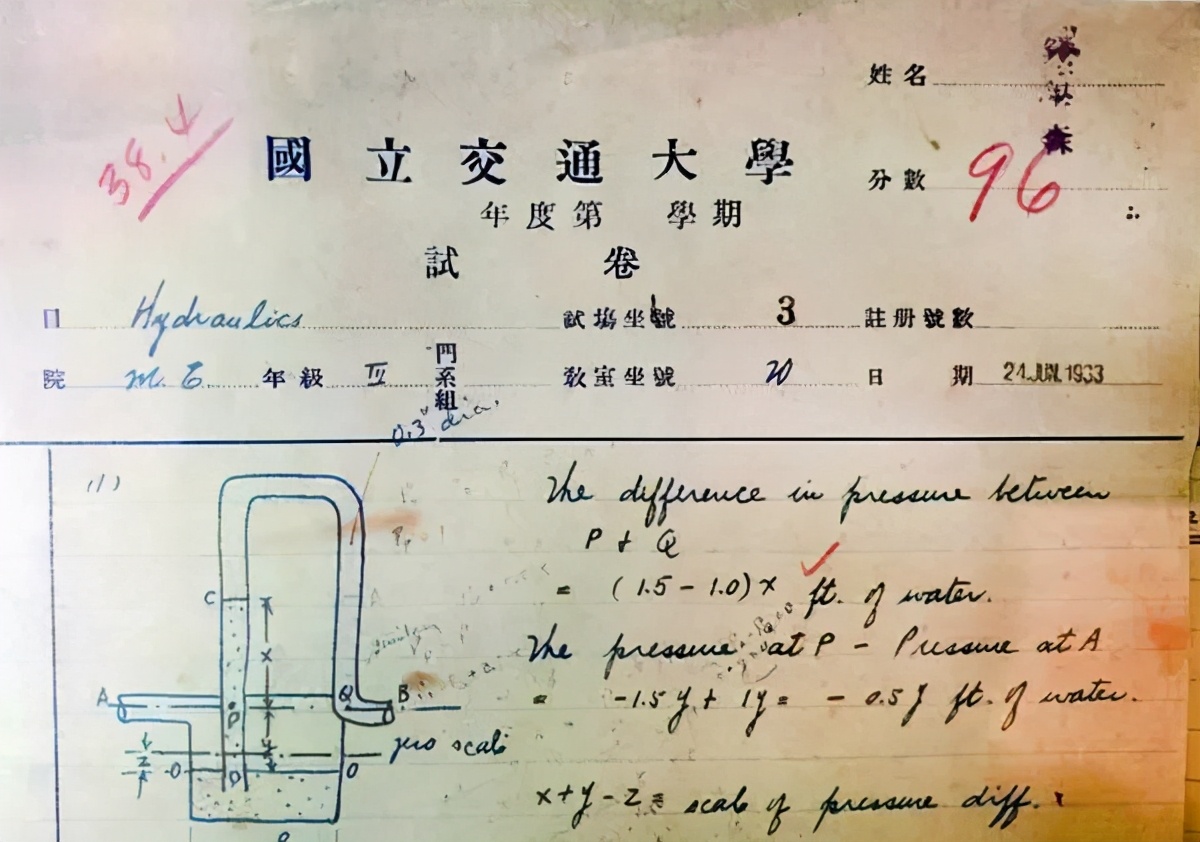 姓名
38.4
國立交通大學
分數 96
年度第 學期
試卷
目 Hydraulics 試場坐號 3 註册號數
院 M. E 年級 III 門系組 教室坐號 20 日期 24 JUN. 1933
0.3" dia.
(1)
The difference in pressure between
P + Q
= (1.5 - 1.0) x ft. of water.
C
x
The pressure at P - Pressure at A
A
P
Q
B
= -1.5 y + 1 y = - 0.5 y ft. of water.
y
zero scale
z
O
D
O
x + y - z = scale of pressure diff.